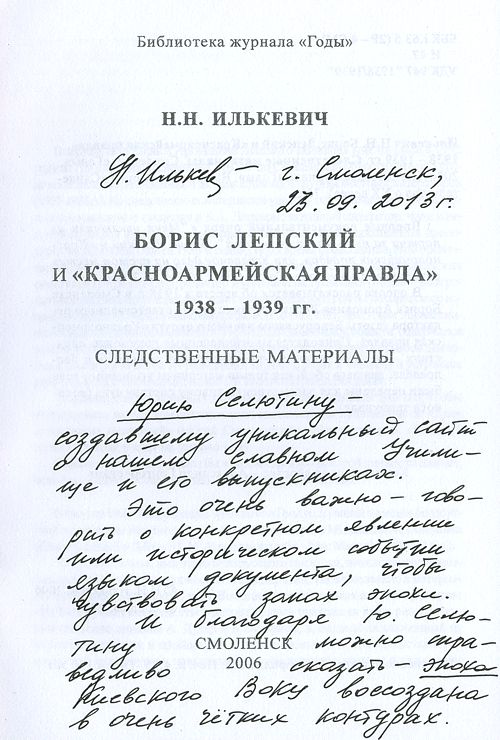 Библиотека журнала «Годы»
Н.Н. ИЛЬКЕВИЧ
Н. Илькевич г. Смоленск,
23.09.2013 г.
БОРИС ЛЕПСКИЙ
И «КРАСНОАРМЕЙСКАЯ ПРАВДА»
1938 – 1939 гг.
СЛЕДСТВЕННЫЕ МАТЕРИАЛЫ
Юрию Селютину –
создавшему уникальный сайт
о нашем славном Учили-
ще и его выпускниках.
Это очень важно – гово-
рить о конкретном явлении
или историческом событии
языком документа, чтобы
чувствовать запах эпохи.
И благодаря Ю. Селю-
тину можно спра-
СМОЛЕНСК
2006
ведливо сказать – эпоха
Киевского ВОКУ воссоздана
в очень чётких контурах.